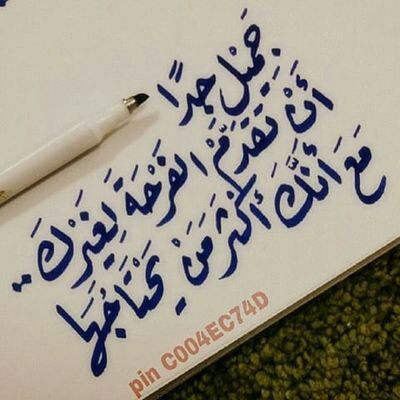 جَمِيْل جِدًا
أَنْ تُقَدِّمَ الفَرْحَةَ لِغَيْرِكَ..
مَعَ أَنَّكَ أَكْثَرُ مَنْ يَحْتَاجُهَا
pin C004EC74D